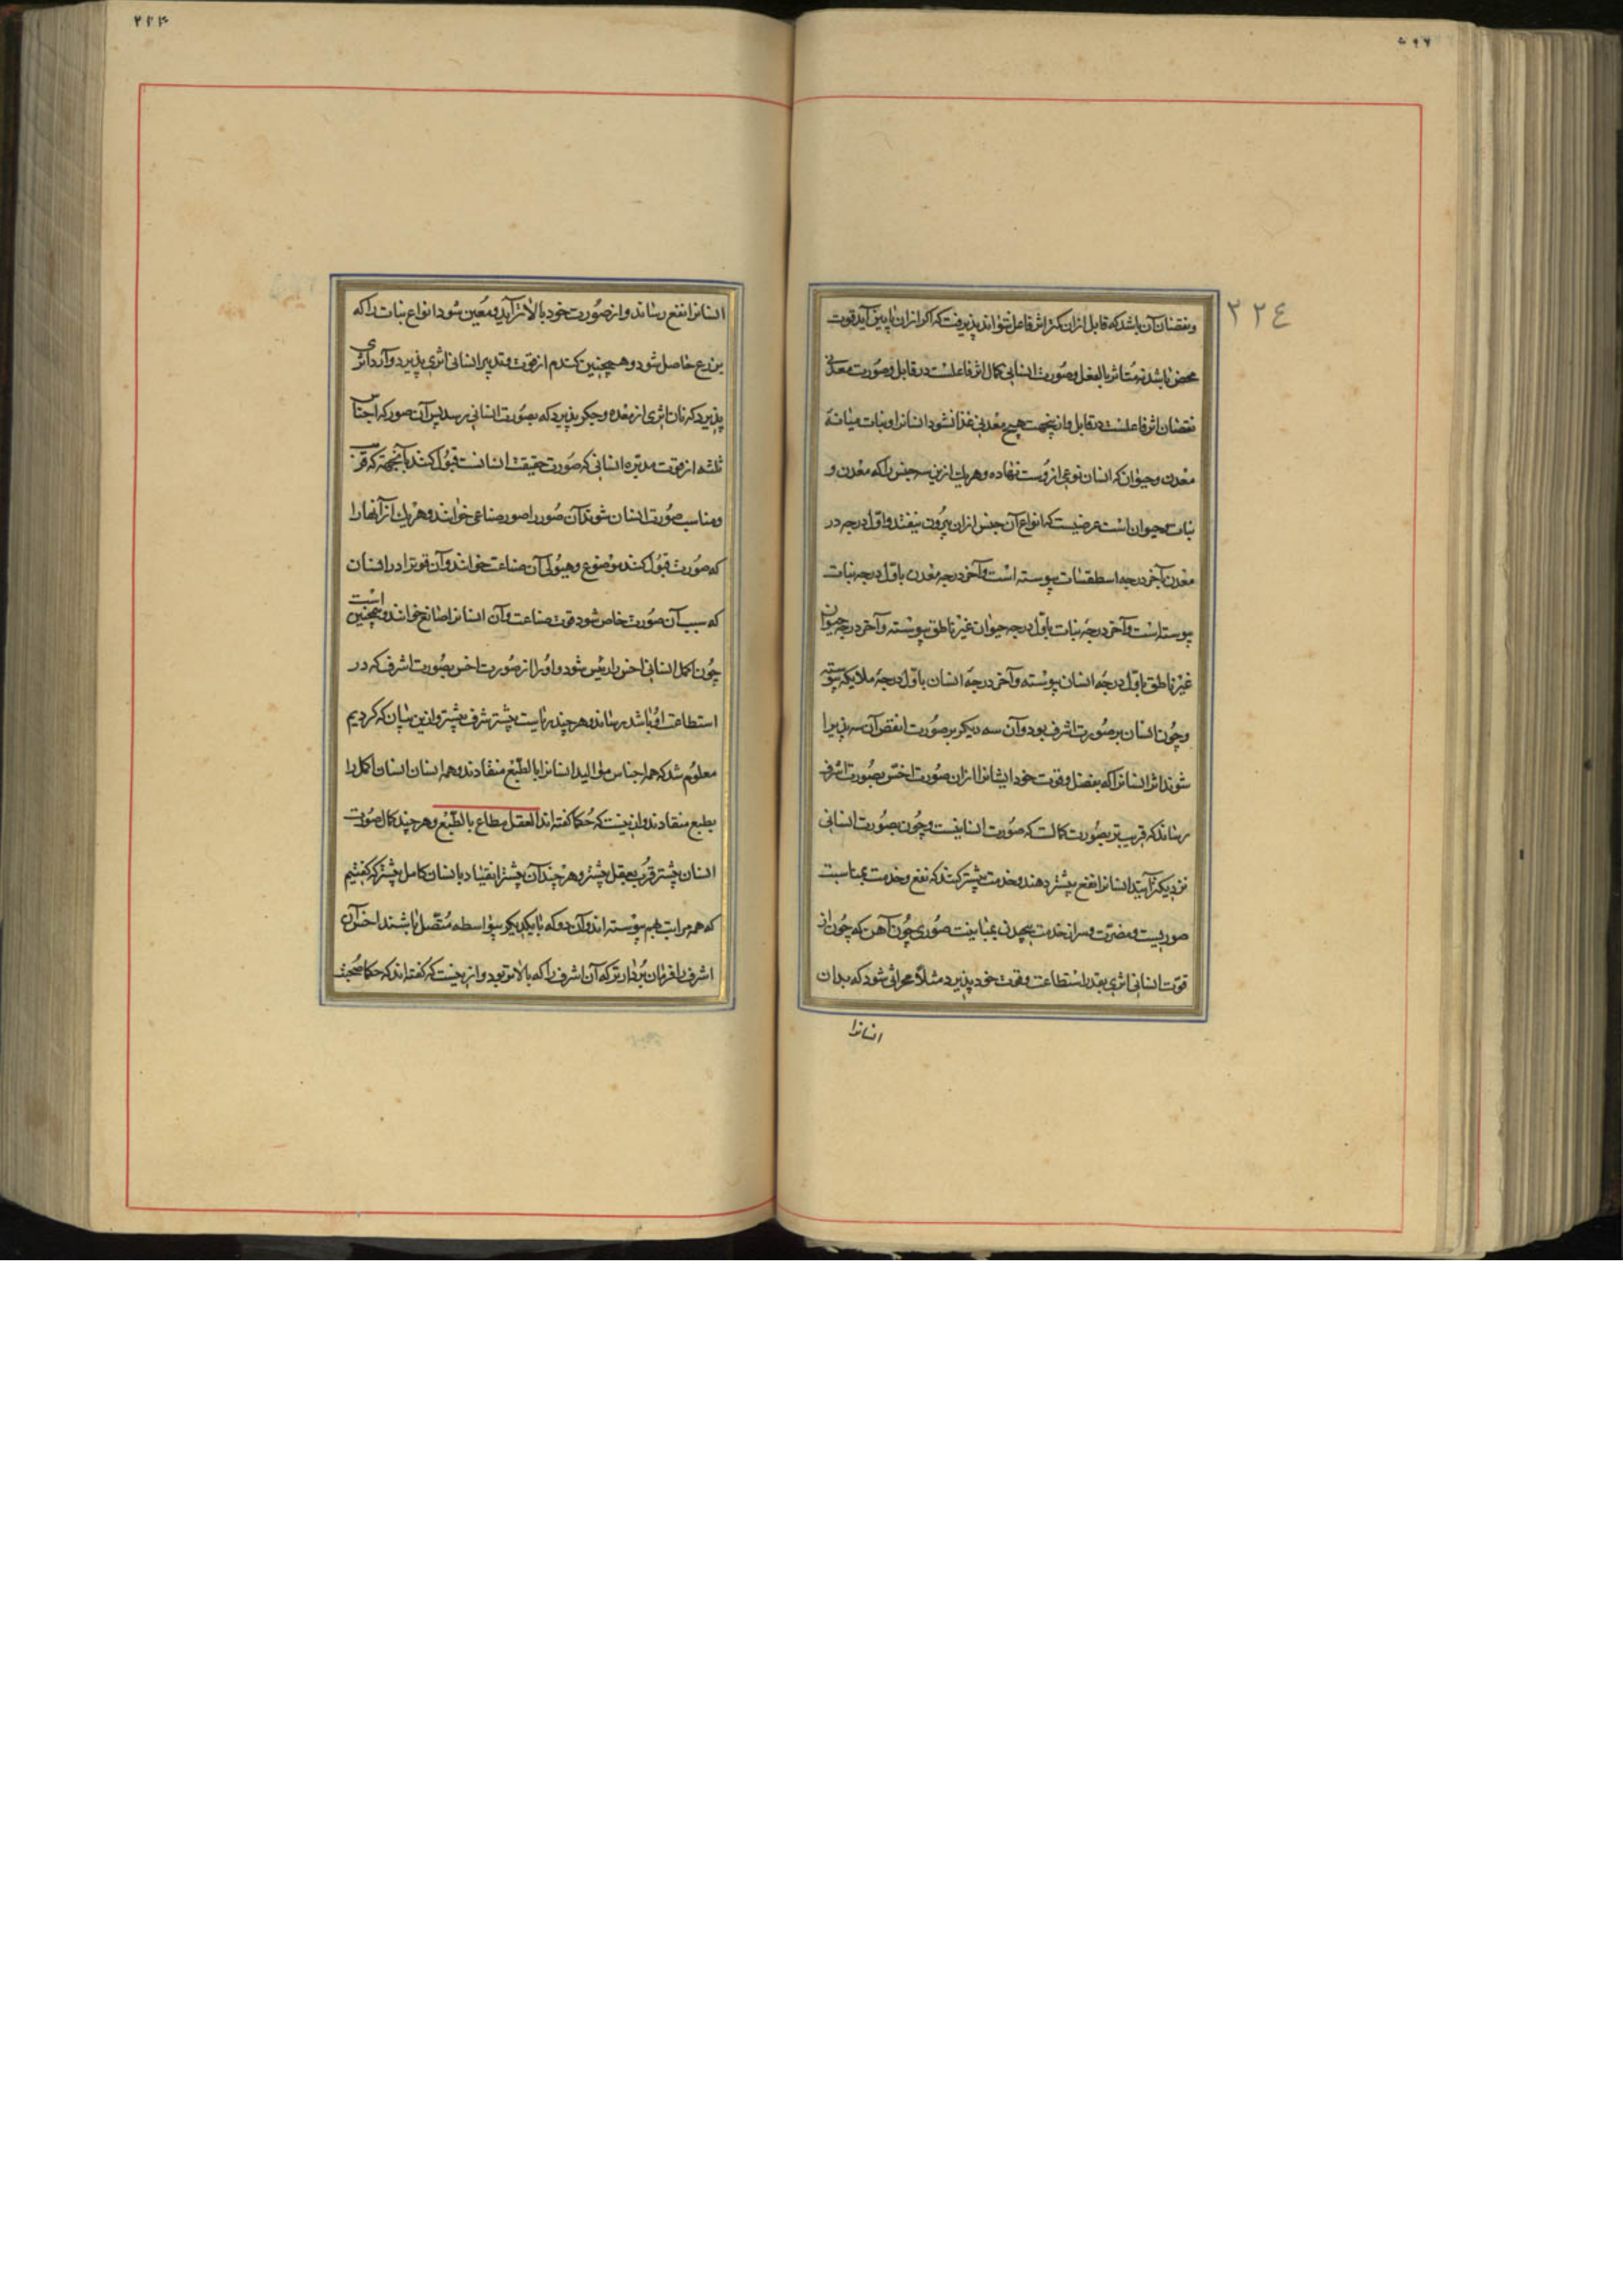 ٢٢٤
و نقصان آن باشد که قابل ازان کمتر اثر فاعل نتواند پذیرفت که اگر ازان پایین آید قوت
محض باشد نه متاثر بالفعل و صورت انسانی کمال اثر فاعلست در قابل و صورت معدنی
نقصان اثر فاعلست در قابل و ازینجهت هیچ معدنی غذا نشود انسانرا و نبات میانهٔ
معدن و حیوان که انسان نوعی ازوست نهاده و هریک ازین سه جنس را که معدن و
نبات و حیوان است عرضیست که انواع آن جنس ازان بیرون نیفتند و اول درجه در
معدن بآخر درجه اسطقسات پیوسته است و آخر درجه معدن باول درجه نبات
پیوسته است و آخر درجهٔ نبات باول درجه حیوان غیر ناطق پیوسته و آخر درجه حیوان
غیر ناطق باول درجه انسان پیوسته و آخر درجهٔ انسان باول درجهٔ ملایکه پیوسته
و چون انسان بر صورت اشرف بود و آن سه دیگر بر صورت انقص آن سه پذیرا
شوند اثر انسانرا که بفضل و قوت خود ایشانرا ازان صورت اخس بصورت اشرف
رساند که قریب‌تر بصورت کمالست که صورت انسانیست و چون بصورت انسانی
نزدیکتر آیند انسانرا نفع بیشتر دهند و خدمت بیشتر کنند که نفع و خدمت بمناسبت
صوریست و مضرت و سر از خدمت پیچیدن بمباینت صوری چون آهن که چون از
قوت انسانی اثری بقدر استطاعت و قوت خود پذیرد مثلاً محراثی شود که بدان
انسانرا
انسانرا نفع رساند و از صورت خود بالاتر آید و معین شود انواع نبات را که
بزرع حاصل شود و همچنین گندم از قوت و تدبیر انسانی اثری پذیرد و آرد اثری
پذیرد که نان اثری از معده و جگر پذیرد که بصورت انسانی رسد پس آن صور که اجناس
ثلثه از قوت مدبره انسانی که صورت حقیقت انسانست قبول کنند بآنجهة که قریب
و مناسب صورت انسان شوند آن صور را صور صناعی خوانند و هریک از آنها را
که صورت قبول کند موضوع و هیولی آن صناعت خوانند و آن قوترا در انسان
که سبب آن صورت خاص شود قوت صناعت و آن انسانرا صانع خوانند و همچنین است
چون اکمل انسانی اخس را رئیس شود و او را از صورت اخس بصورت اشرف که در
استطاعت او باشد برساند و هرچند ریاست بیشتر شرف بیشتر و ازین بیان که کردیم
معلوم شد که همه اجناس موالید انسانرا بالطبع منقادند و همه انسان انسان اکمل را
بطبع منقادند و ازینست که حکما گفته‌اند العقل مطاع بالطبع و هرچند کمال صورت
انسان بیشتر قرب بعقل بیشتر و هرچند آن بیشتر انقیاد بانسان کامل بیشتر که گفتیم
که همه مراتب بهم پیوسته‌اند و آن دو که با یکدیگر بیواسطه متصل باشند اخس آن
اشرف را فرمان بردارتر که آن اشرف را که بالاتر بود و ازینست که گفته‌اند که حکما صحبت